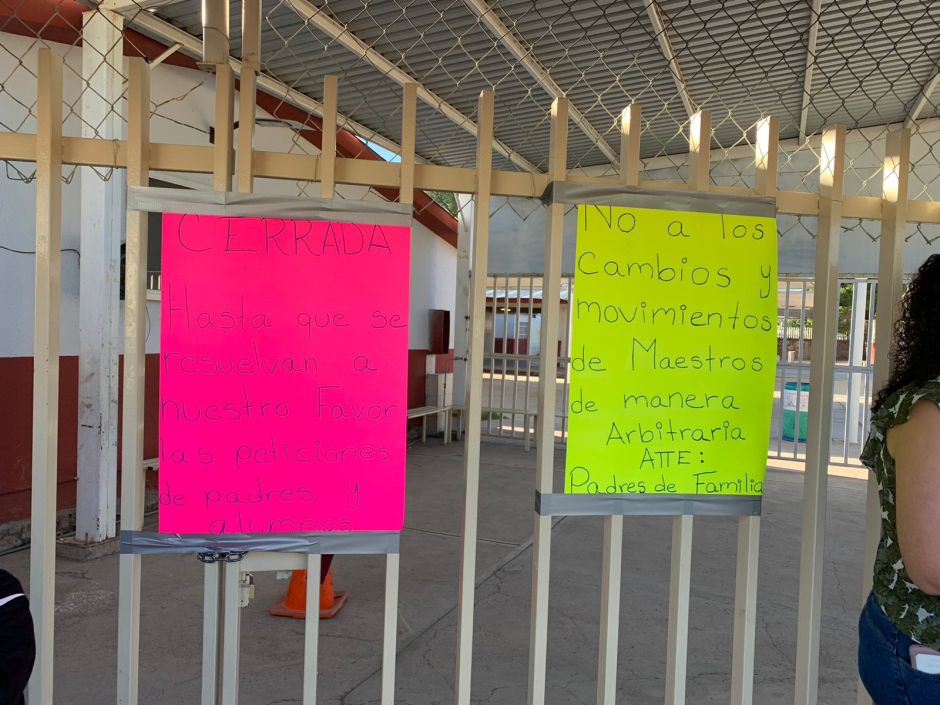 CERRADA
Hasta que se
resuelvan a
nuestro Favor
las peticiones
de padres y
alumnos
No a los
Cambios y
movimientos
de Maestros
de manera
Arbitraria
ATTE:
Padres de Familia